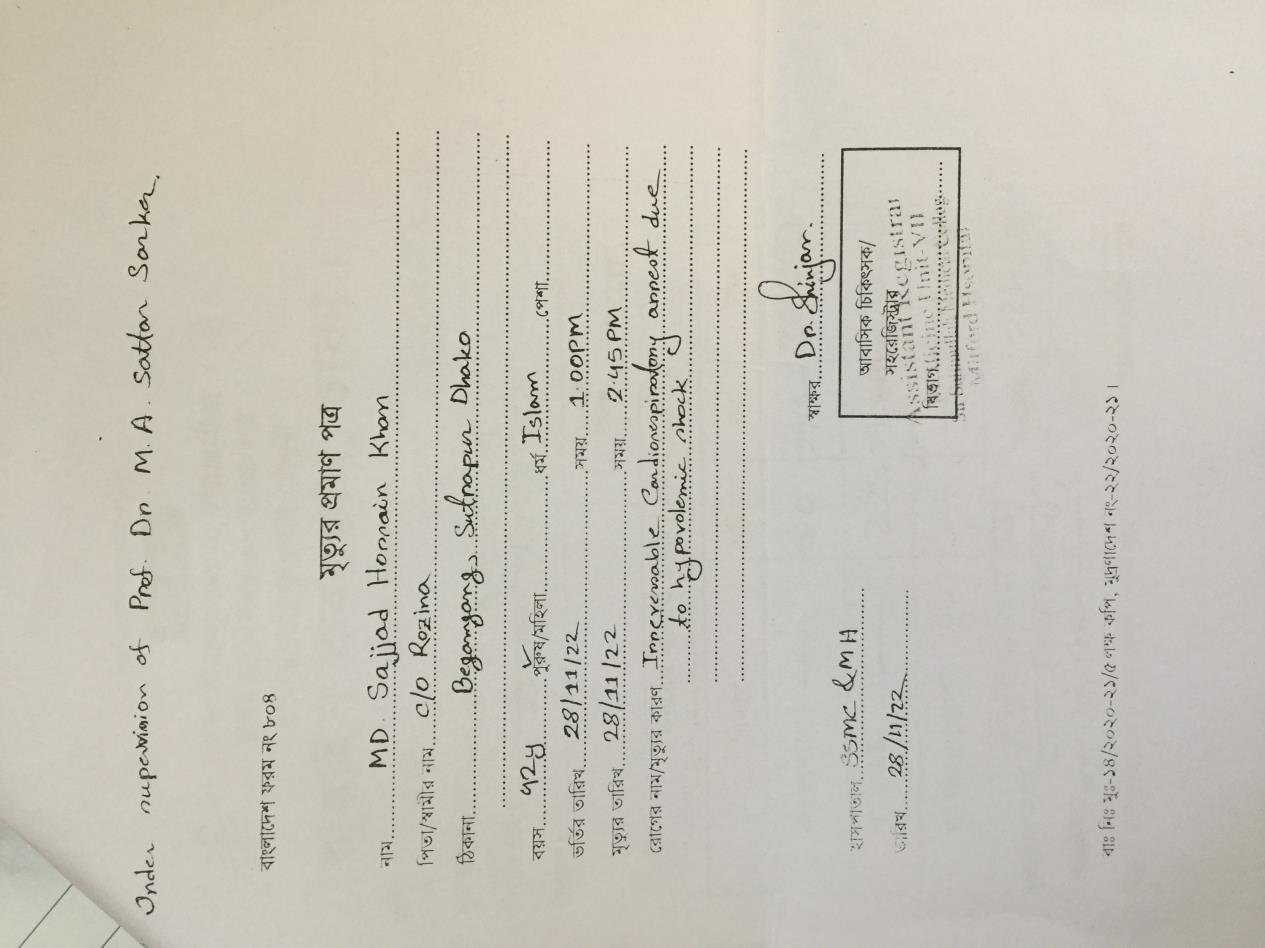 Under supervision of Prof. Dr. M. A. Sattar Sarker.
বাংলাদেশ ফরম নং ৮০৪
মৃত্যুর প্রমাণ পত্র
নাম MD. Sajjad Hossain Khan
পিতা/স্বামীর নাম C/O Rozina
ঠিকানা Begamganj, Sutrapur Dhaka
বয়স 92y পুরুষ/মহিলা ধর্ম Islam পেশা
ভর্তির তারিখ 28/11/22 সময় 1.00PM
মৃত্যুর তারিখ 28/11/22 সময় 2.45PM
রোগের নাম/মৃত্যুর কারণ Irreversable Cardiorespiratory arrest due
to hypovolemic shock
স্বাক্ষর Dr. Shinjar.
হাসপাতাল SSMC & MH
তারিখ 28/11/22
আবাসিক চিকিৎসক/
সহরেজিস্ট্রার
Assistant Registrar
বিভাগ
Medicine Unit-VII
Sir Salimullah Medical College
Mitford Hospital
বাঃ নিঃ মুঃ-১৪/২০২০-২১/৫ লক্ষ কপি, মুদ্রণাদেশ নং-২২/২০২০-২১।